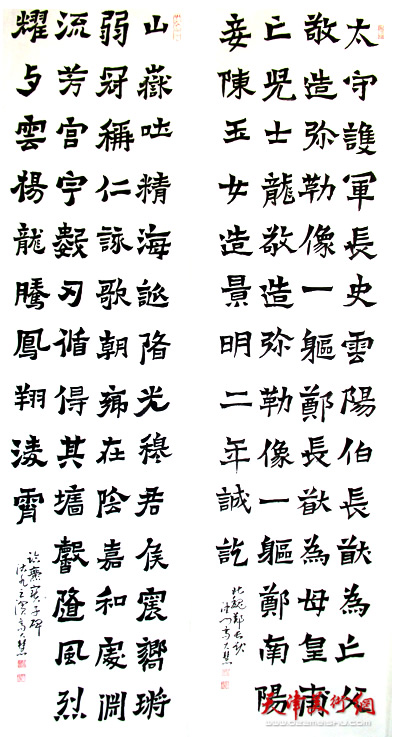 太守護軍長史雲陽伯長猷為亡父
敬造弥勒像一軀鄭長猷為母皇甫
亡児士龍敬造弥勒像一軀鄭南陽
妾陳玉女造景明二年誠訖
北魏鄭長猷
山嶽吐精海誕陏光穆君侯震響鏘
弱冠稱仁詠歌朝鄉在陰嘉和處淵
流芳宮宇數刃循得其墻馨隆風烈
耀与雲楊龍騰鳳翔淩霄
臨爨寶子碑
天津美術網